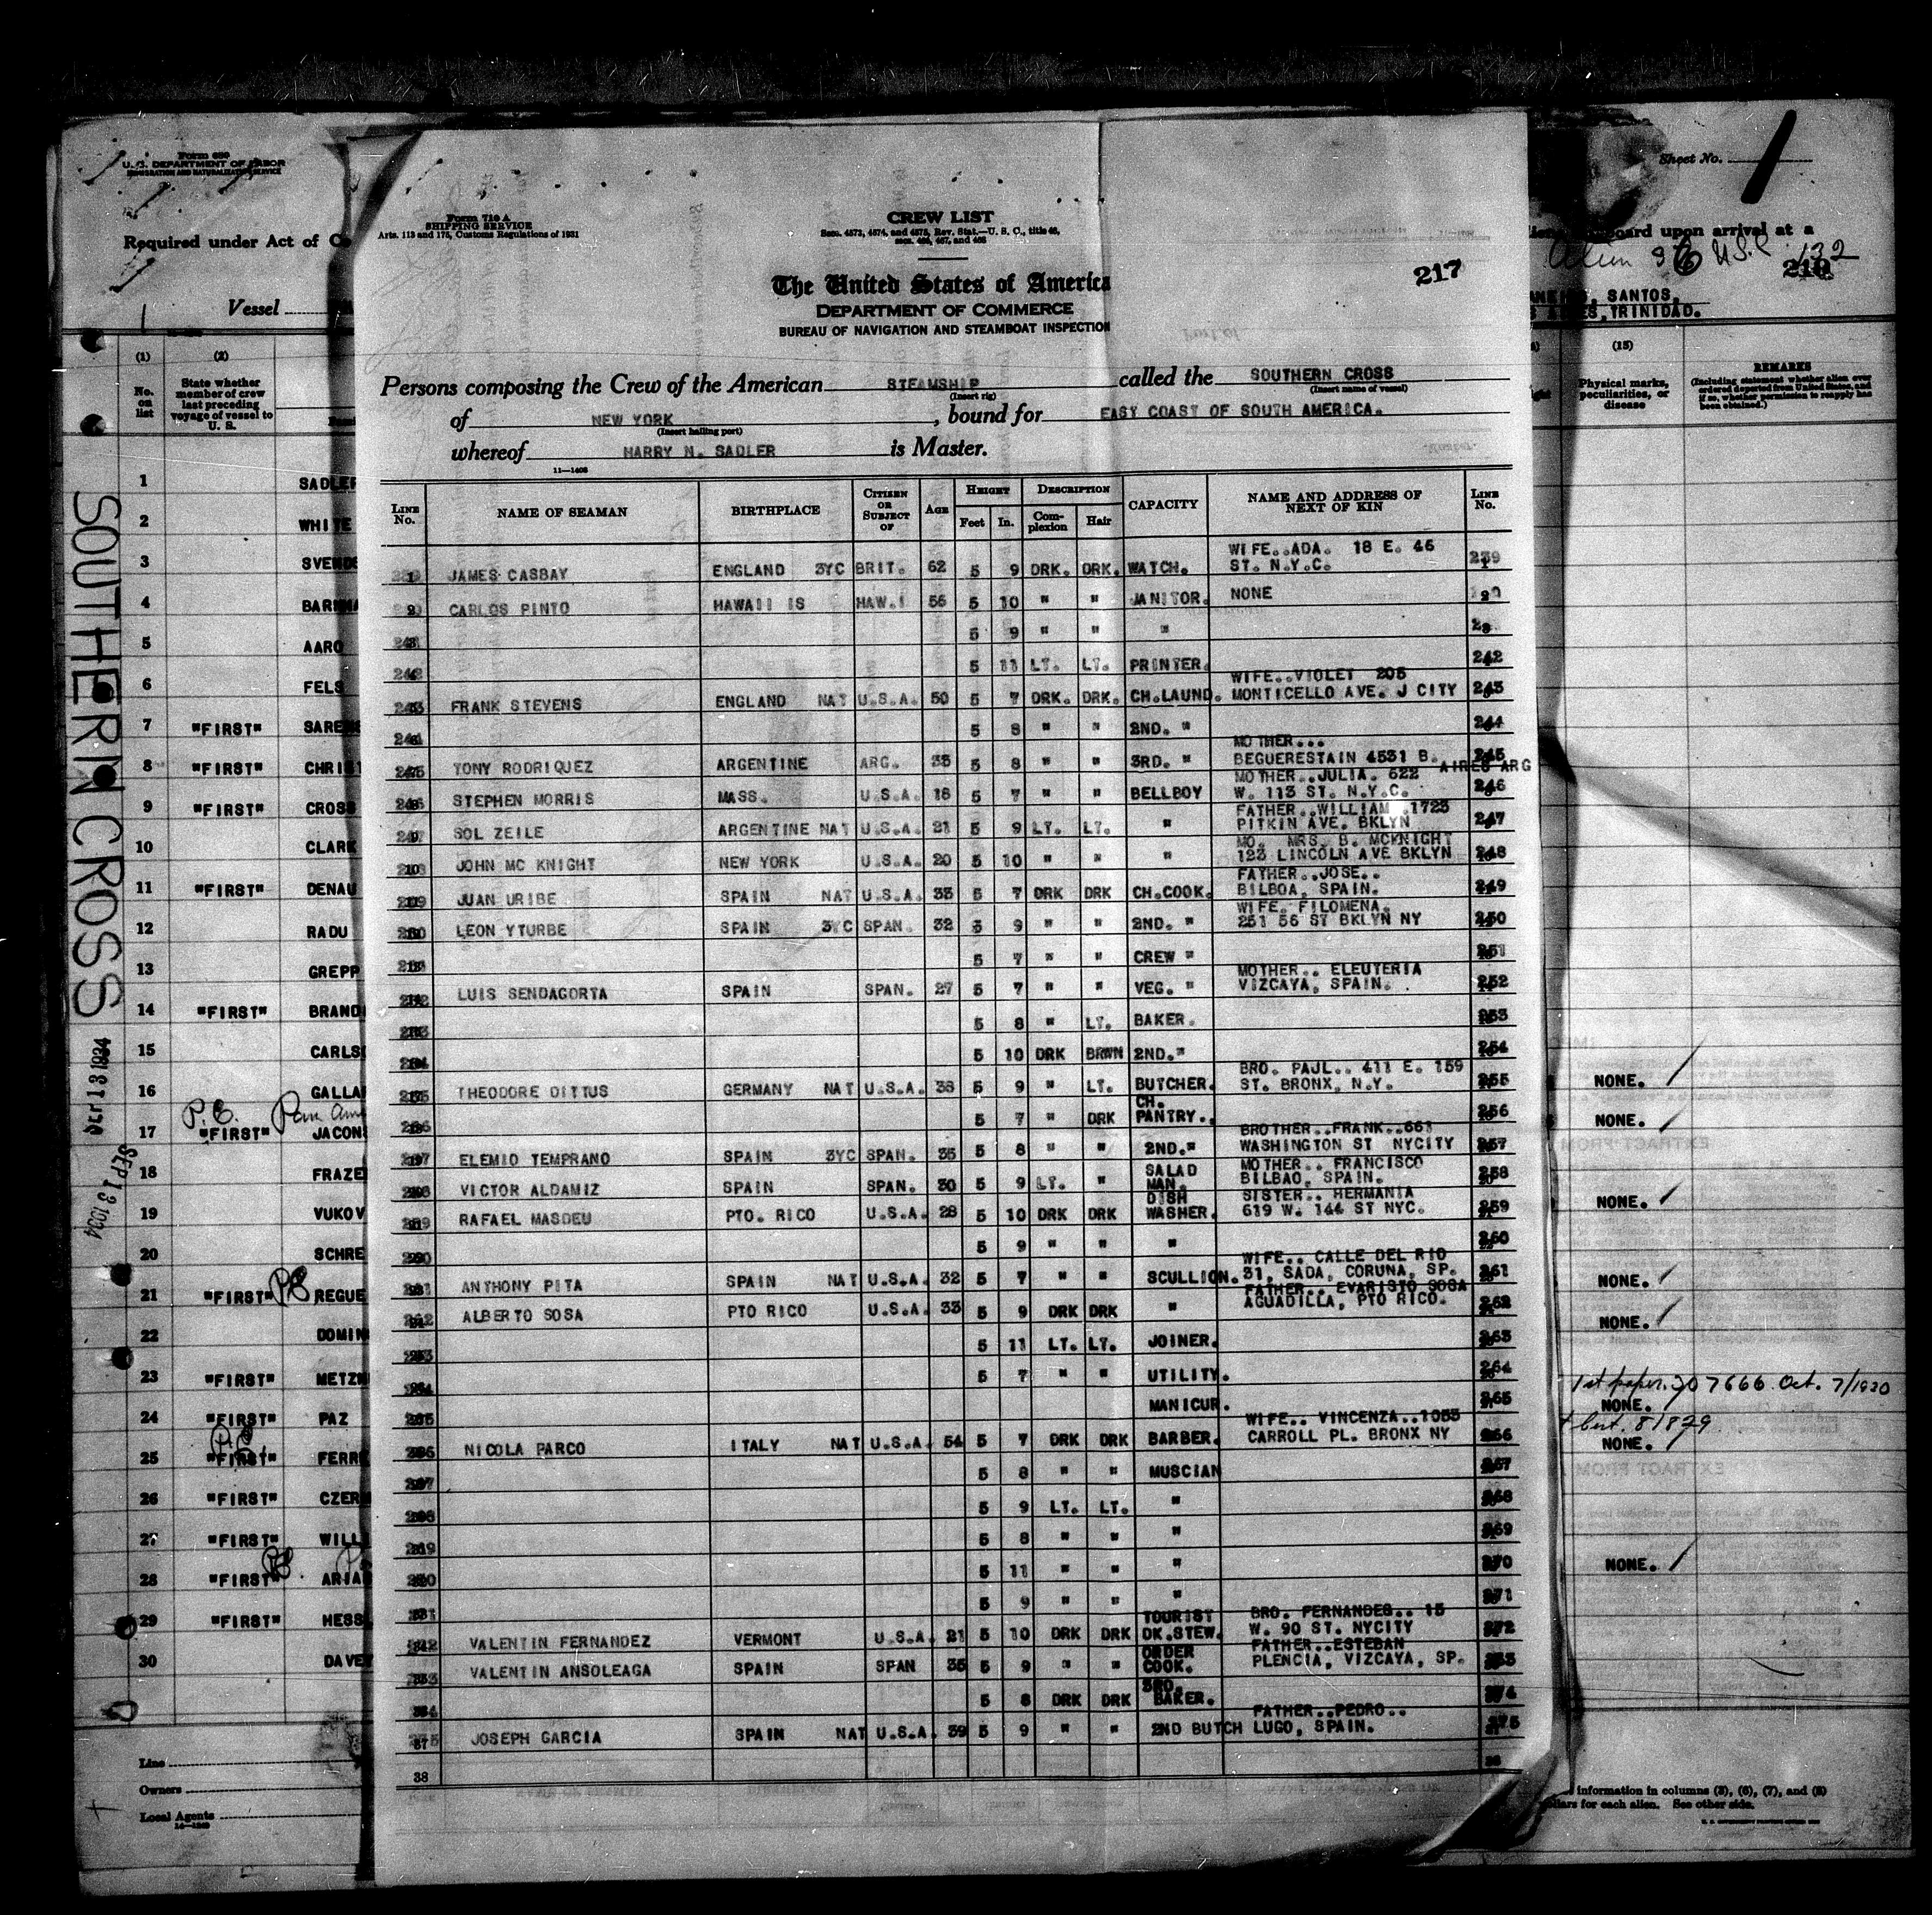 Form 680
U. S. DEPARTMENT OF LABOR
IMMIGRATION AND NATURALIZATION SERVICE
Required under Act of Co
Vessel
(1) (2)
No. on list
State whether member of crew last preceding voyage of vessel to U. S.
1 SADLER
2 WHITE
3 SVENDS
4
5 AARO
6 FELS
7 "FIRST" SARE
8 "FIRST" CHRIS
9 "FIRST" CROSS
10 CLARK
11 "FIRST" DENAU
12 RADU
13 GREPP
14 "FIRST" BRAND
15 CARLS
16 GALLA
P.E. Pan Am
17 "FIRST" JACON
18 FRAZE
19 VUKOV
20 SCHRE
21 "FIRST" REGUE
22 DOMIN
23 "FIRST" METZ
24 "FIRST" PAZ
25 "FIRST" FERR
26 "FIRST" CZER
27 "FIRST" WILL
28 "FIRST" ARIA
29 "FIRST" HESS
30 DAVE
Line
Owners
Local Agents
SOUTHERN CROSS
SEP 13 1934
SEP 13 1934
Form 710 A
SHIPPING SERVICE
Arts. 113 and 175, Customs Regulations of 1931
CREW LIST
Secs. 4573, 4574, and 4575, Rev. Stat.—U. S. C., title 46,
secs. 466, 467, and 468
The United States of America
DEPARTMENT OF COMMERCE
BUREAU OF NAVIGATION AND STEAMBOAT INSPECTION
217
Persons composing the Crew of the American STEAMSHIP called the SOUTHERN CROSS
(Insert rig) (Insert name of vessel)
of NEW YORK, bound for EAST COAST OF SOUTH AMERICA.
(Insert hailing port)
whereof HARRY N. SADLER is Master.
11—1408
LINE No. NAME OF SEAMAN BIRTHPLACE CITIZEN OR SUBJECT OF AGE HEIGHT Feet In. DESCRIPTION Complexion Hair CAPACITY NAME AND ADDRESS OF NEXT OF KIN LINE No.
1 JAMES CASBAY ENGLAND 3YC BRIT. 62 5 9 DRK. DRK. WATCH. WIFE..ADA. 18 E. 46 ST. N.Y.C. 239
2 CARLOS PINTO HAWAII IS HAW.I 56 5 10 " " JANITOR. NONE
5 9 " " "
242 5 11 LT. LT. PRINTER. 242
243 FRANK STEVENS ENGLAND NAT U.S.A. 50 5 7 DRK. DRK. CH.LAUND. WIFE..VIOLET 205 MONTICELLO AVE. J CITY 243
5 8 " " 2ND. " 244
TONY RODRIQUEZ ARGENTINE ARG. 35 5 8 " " 3RD. " MOTHER... BEGUERESTAIN 4531 B. AIRES ARG 245
246 STEPHEN MORRIS MASS. U.S.A. 18 5 7 " " BELLBOY MOTHER..JULIA. 622 W. 113 ST. N.Y.C. 246
247 SOL ZEILE ARGENTINE NAT U.S.A. 21 5 9 LT. LT. " FATHER..WILLIAM .1723 PITKIN AVE. BKLYN 247
JOHN MC KNIGHT NEW YORK U.S.A. 20 5 10 " " " MO. MRS. B. MCKNIGHT 123 LINCOLN AVE BKLYN 248
JUAN URIBE SPAIN NAT U.S.A. 33 5 7 DRK DRK CH.COOK. FATHER..JOSE.. BILBOA, SPAIN. 249
LEON YTURBE SPAIN 3YC SPAN. 32 5 9 " " 2ND. " WIFE. FILOMENA. 251 56 ST BKLYN NY 250
5 7 " " CREW " 251
LUIS SENDAGORTA SPAIN SPAN. 27 5 7 " " VEG. " MOTHER.. ELEUTERIA VIZCAYA, SPAIN. 252
5 8 " LT. BAKER. 253
5 10 DRK BRWN 2ND." 254
THEODORE DITTUS GERMANY NAT U.S.A. 38 5 9 " LT. BUTCHER. BRO. PAUL.. 411 E. 159 ST. BRONX, N.Y. 255
5 7 " DRK CH. PANTRY. 256
ELEMIO TEMPRANO SPAIN 3YC SPAN. 35 5 8 " " 2ND." BROTHER..FRANK..661 WASHINGTON ST NYCITY 257
VICTOR ALDAMIZ SPAIN SPAN. 30 5 9 LT. " SALAD MAN. MOTHER.. FRANCISCO BILBAO, SPAIN. 258
RAFAEL MASDEU PTO. RICO U.S.A. 28 5 10 DRK DRK DISH WASHER. SISTER.. HERMANIA 619 W. 144 ST NYC. 259
5 9 " " " 260
ANTHONY PITA SPAIN NAT U.S.A. 32 5 7 " " SCULLION. WIFE.. CALLE DEL RIO 31, SADA, CORUNA, SP. 261
262 ALBERTO SOSA PTO RICO U.S.A. 33 5 9 DRK DRK " FATHER.. EVARISTO SOSA AGUADILLA, PTO RICO. 262
5 11 LT. LT. JOINER. 263
5 7 " " UTILITY. 264
MANICUR. 265
NICOLA PARCO ITALY NAT U.S.A. 54 5 7 DRK DRK BARBER. WIFE.. VINCENZA..1053 CARROLL PL. BRONX NY 266
5 8 " " MUSCIAN 267
5 9 LT. LT. " 268
5 8 " " " 269
5 11 " " " 270
5 9 " " " 271
VALENTIN FERNANDEZ VERMONT U.S.A. 21 5 10 DRK DRK TOURIST DK.STEW. BRO. FERNANDES.. 15 W. 90 ST. NYCITY 272
VALENTIN ANSOLEAGA SPAIN SPAN 35 5 9 " " ORDER COOK. FATHER..ESTEBAN PLENCIA, VIZCAYA, SP.
5 8 DRK DRK 3RD. BAKER. 274
JOSEPH GARCIA SPAIN NAT U.S.A. 39 5 9 " " 2ND BUTCH FATHER..PEDRO.. LUGO, SPAIN. 275
38
Sheet No. 1
board upon arrival at a
Alien 96 USC 132
SANTOS,
TRINIDAD.
(15)
Physical marks, peculiarities, or disease
REMARKS
(Including statement whether alien ever ordered deported from United States, and if so, whether permission to reapply has been obtained.)
NONE. /
NONE. /
NONE. /
NONE. /
NONE. /
1st paper. 307666 Oct. 7/1930
NONE.
Cert. 81829
NONE. /
NONE. /
information in columns (3), (6), (7), and (8)
dollars for each alien. See other side.